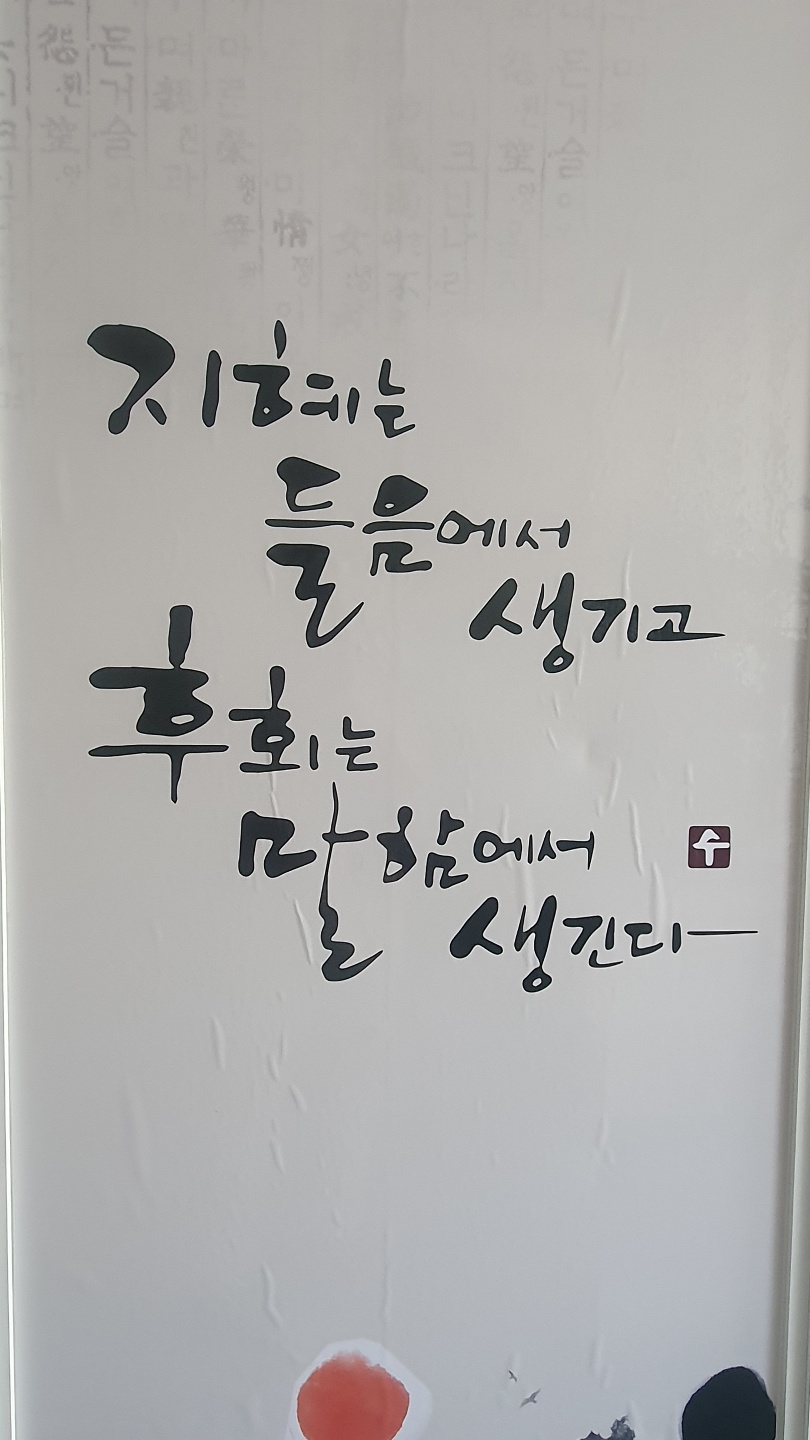 지혜는
들음에서
생기고
후회는
말함에서
수
생긴다